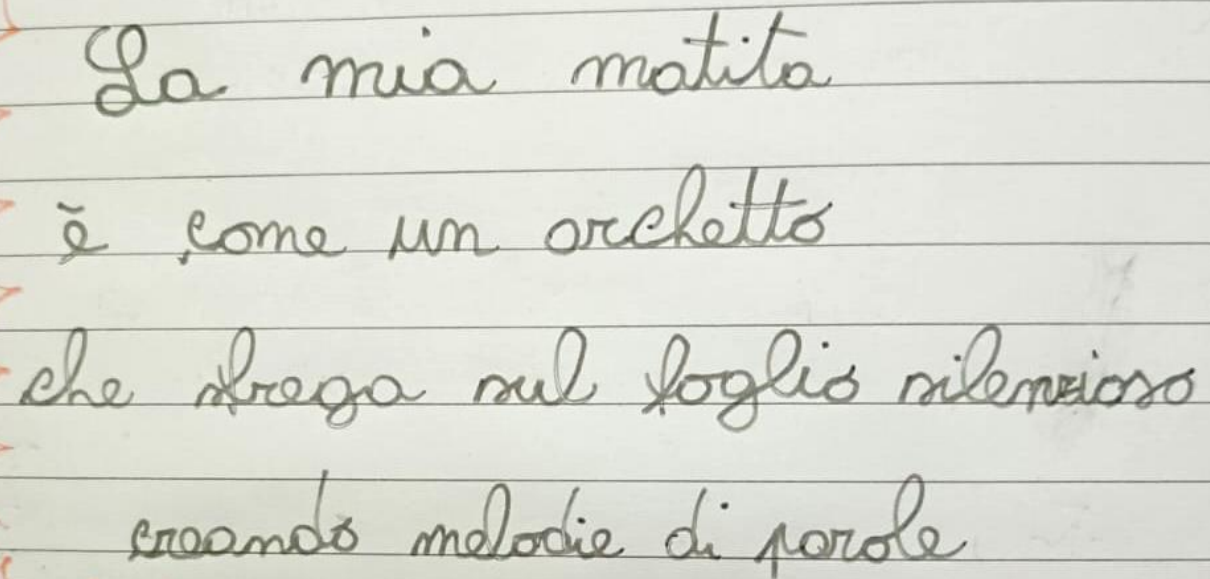 La mia matita
è come un archetto
che sfrega sul foglio silenzioso
creando melodie di parole